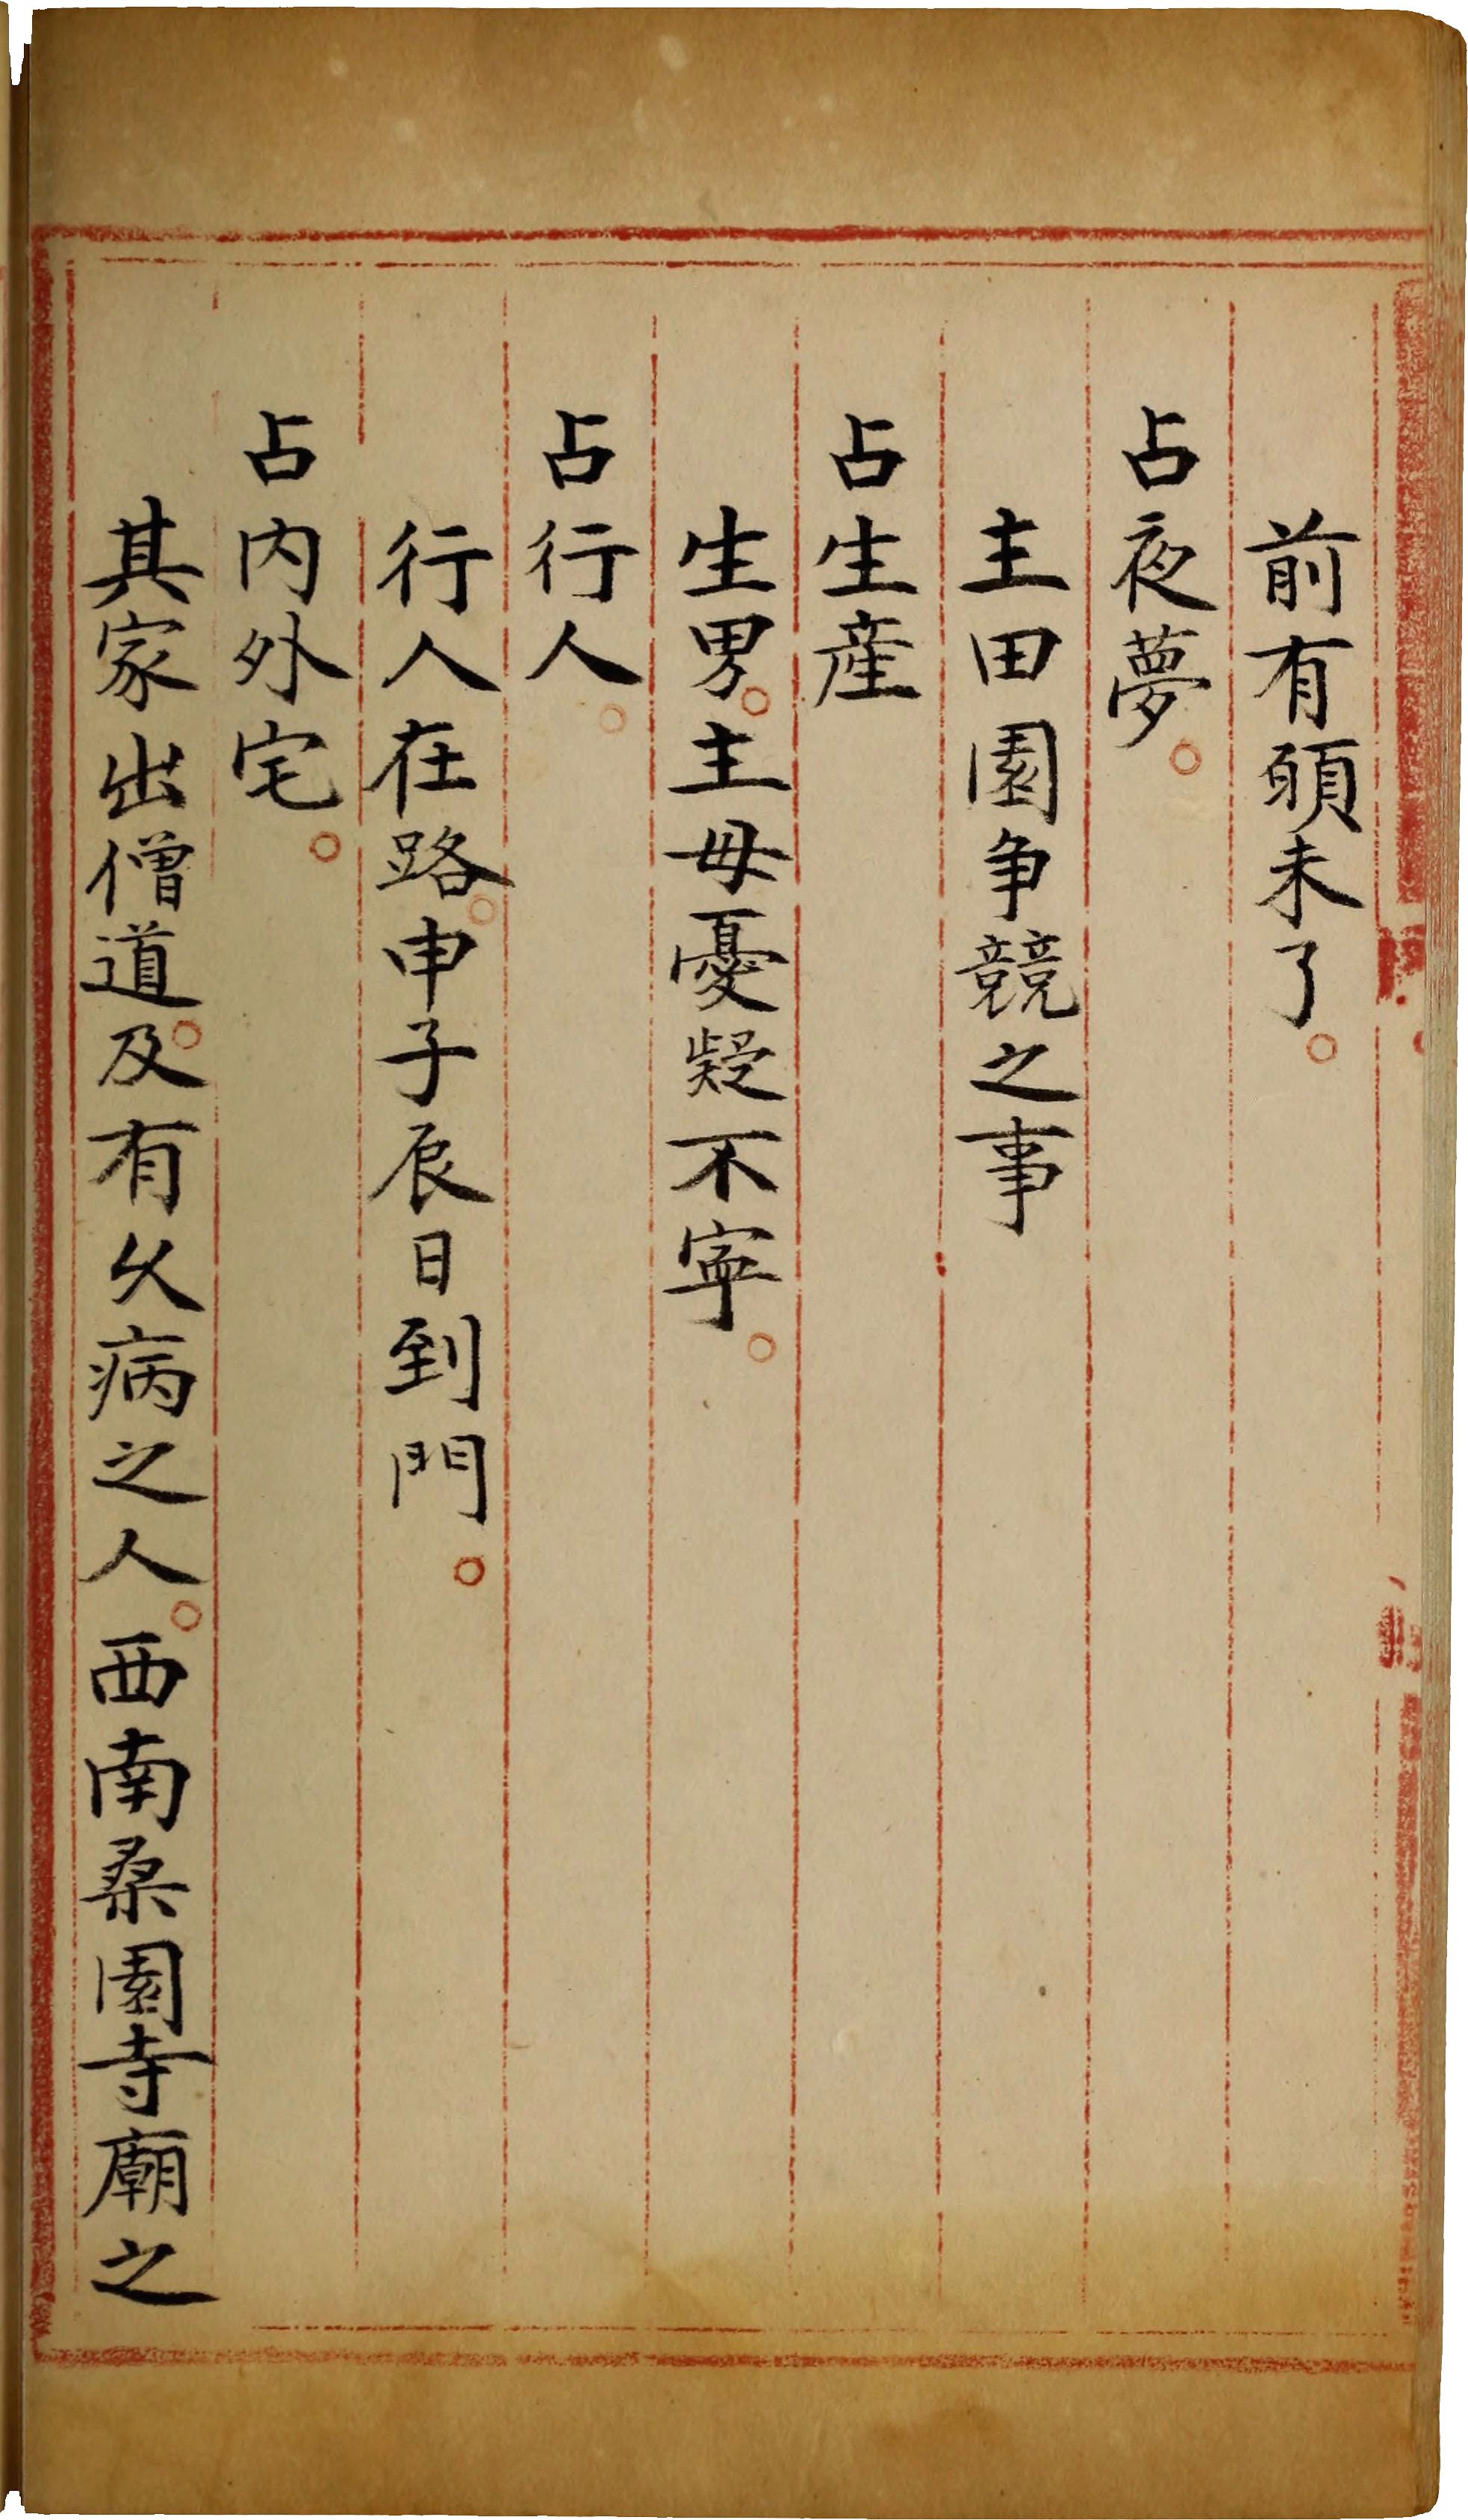 前有願未了。
占夜夢。
主田園争競之事
占生產
生男。主母憂疑不寧。
占行人。
行人在路。申子辰日到門。
占内外宅。
其家出僧道。及有久病之人。西南桑園寺廟之